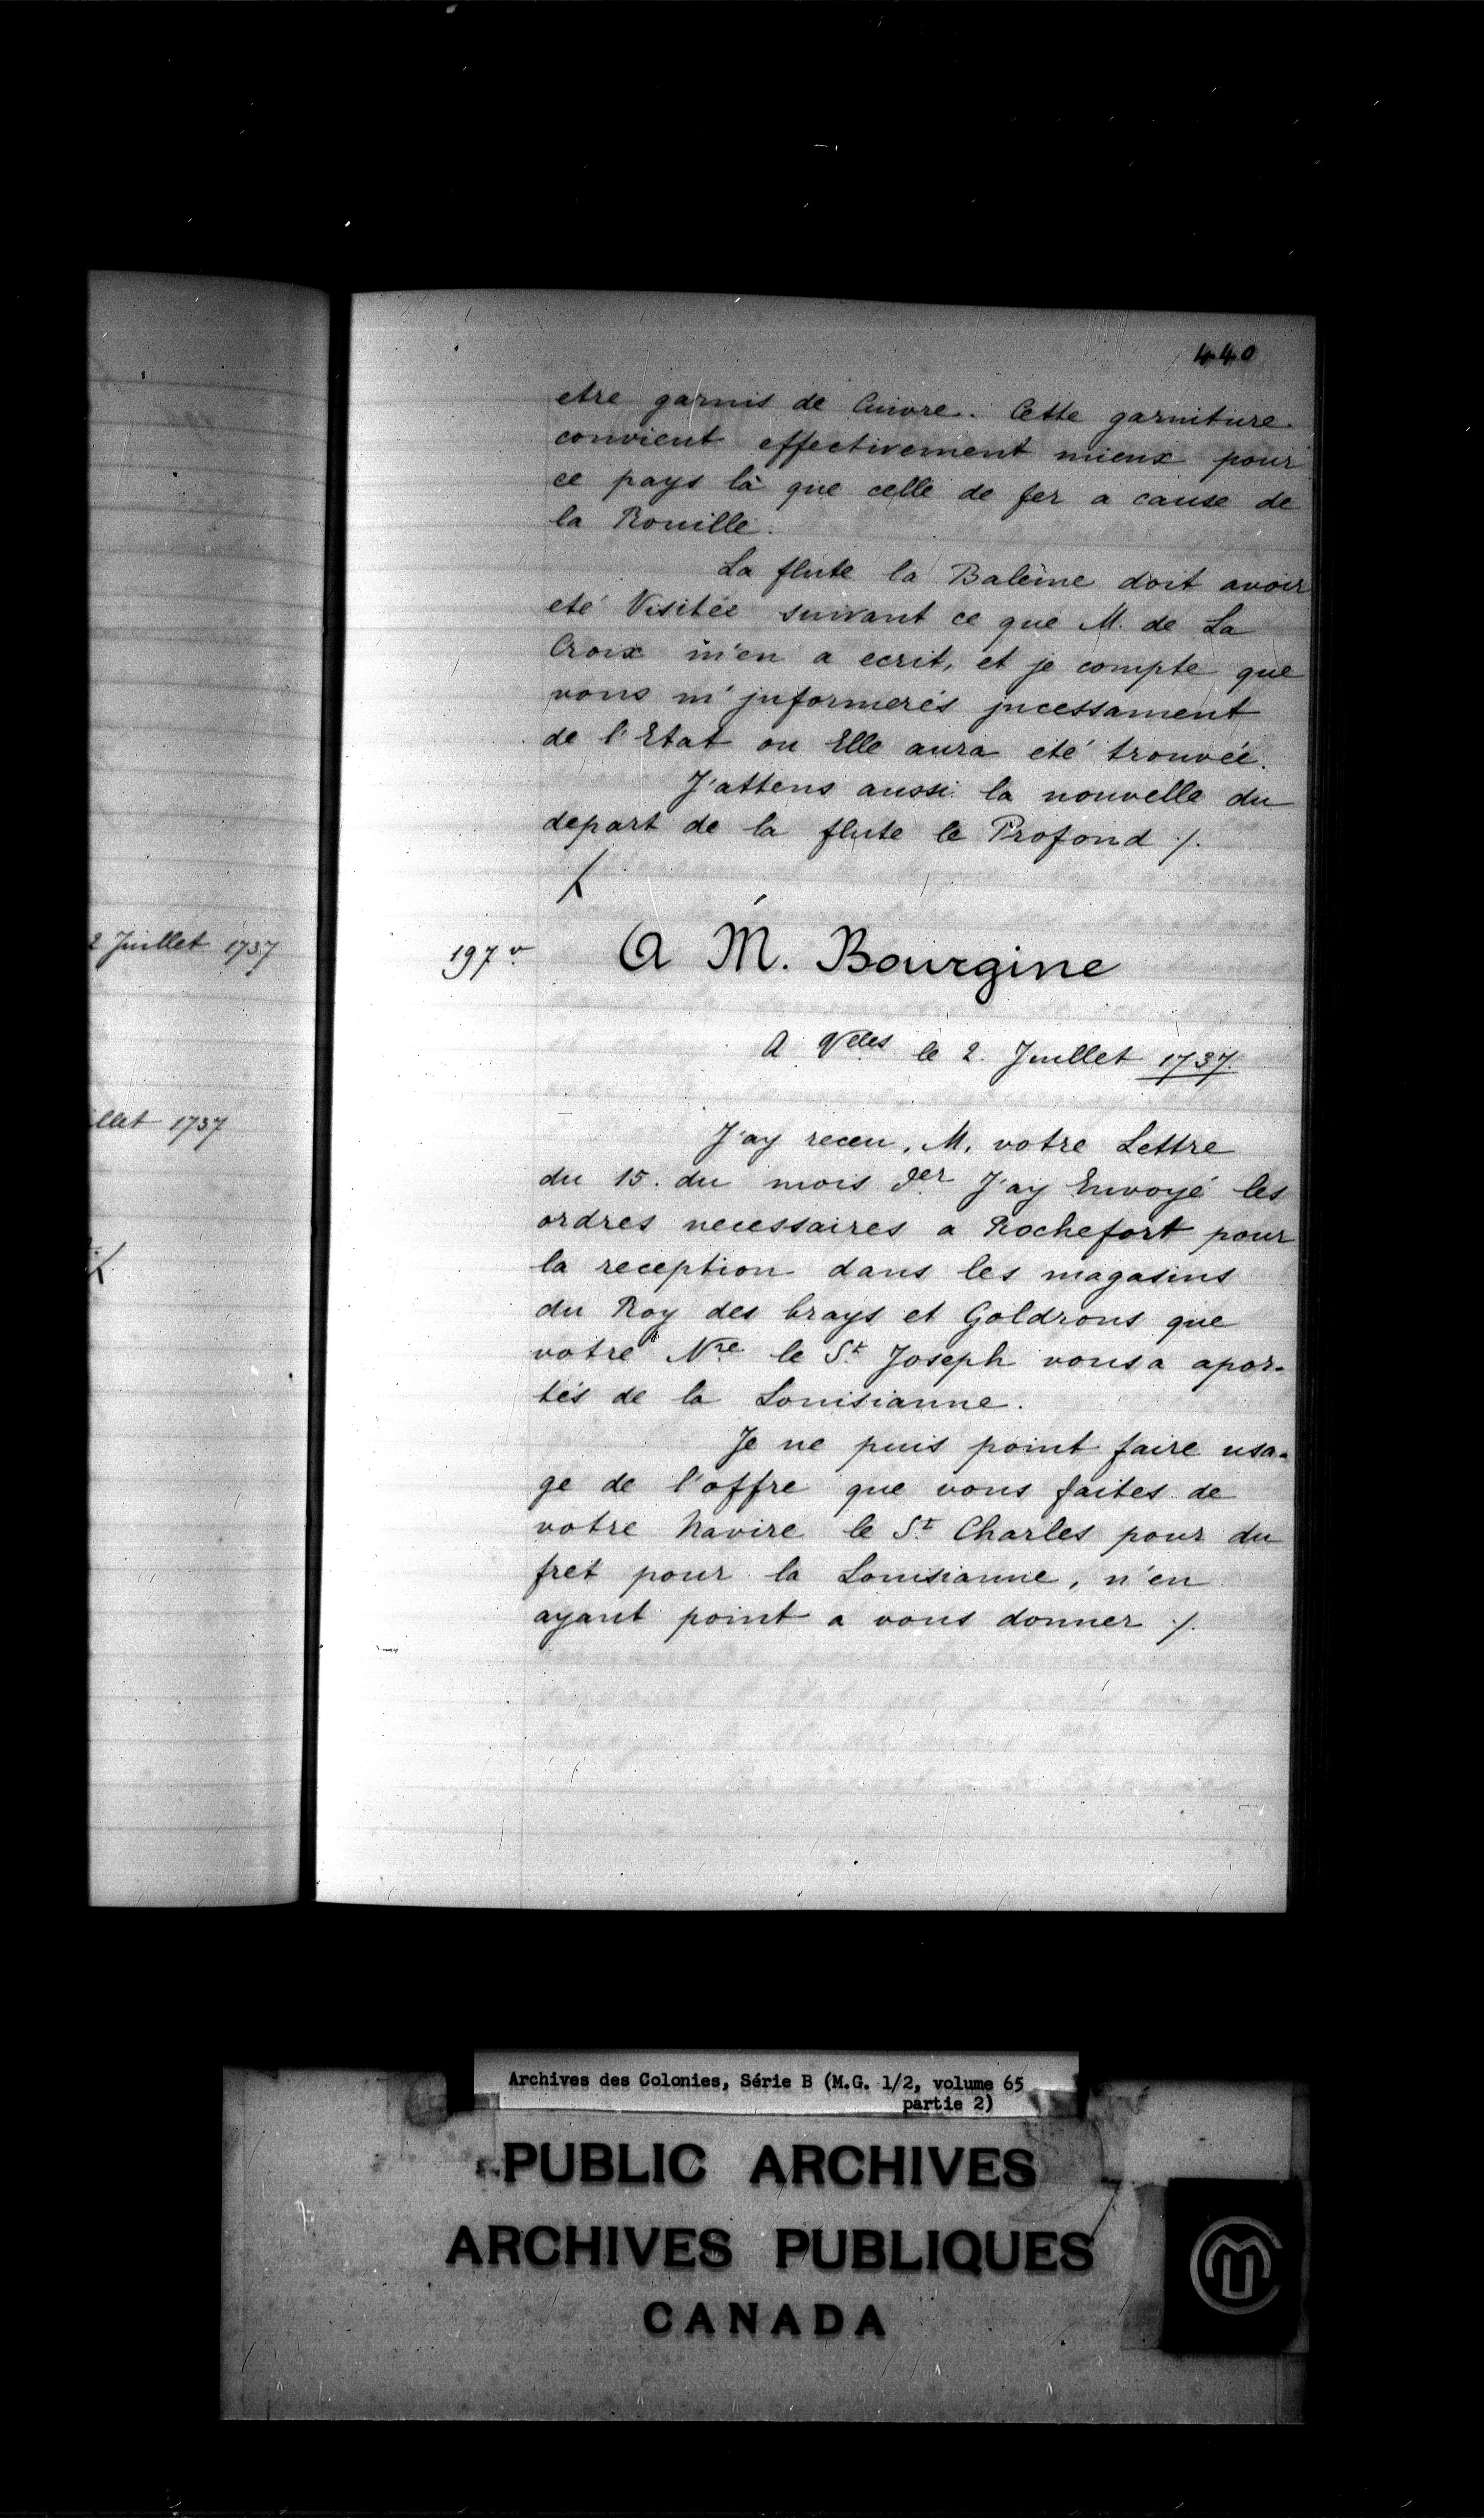 2 Juillet 1737
llet 1737
440
etre garnis de Cuivre. Cette garniture
convient effectivement mieux pour
ce pays là que celle de fer a cause de
la Rouille.
La flute la Baleine doit avoir
eté Visitée suivant ce que M. de La
Croix m'en a ecrit, et je compte que
vous m'jnformerés jncessament
de l'Etat ou Elle aura eté trouvée.
J'attens aussi la nouvelle du
depart de la flute le Profond ./.
197 v.
A M. Bourgine
A Vles le 2. Juillet 1737.
J'ay receu, M, votre Lettre
du 15. du mois der J'ay Envoyé les
ordres necessaires a Rochefort pour
la reception dans les magasins
du Roy des brays et Goldrons que
votre Nre le St Joseph vous a apor-
tés de la Louisianne.
Je ne puis point faire usa-
ge de l'offre que vous faites de
votre Navire le St Charles pour du
fret pour la Louisianne, n'en
ayant point a vous donner ./.
Archives des Colonies, Série B (M.G. 1/2, volume 65
partie 2)
PUBLIC ARCHIVES
ARCHIVES PUBLIQUES
CANADA